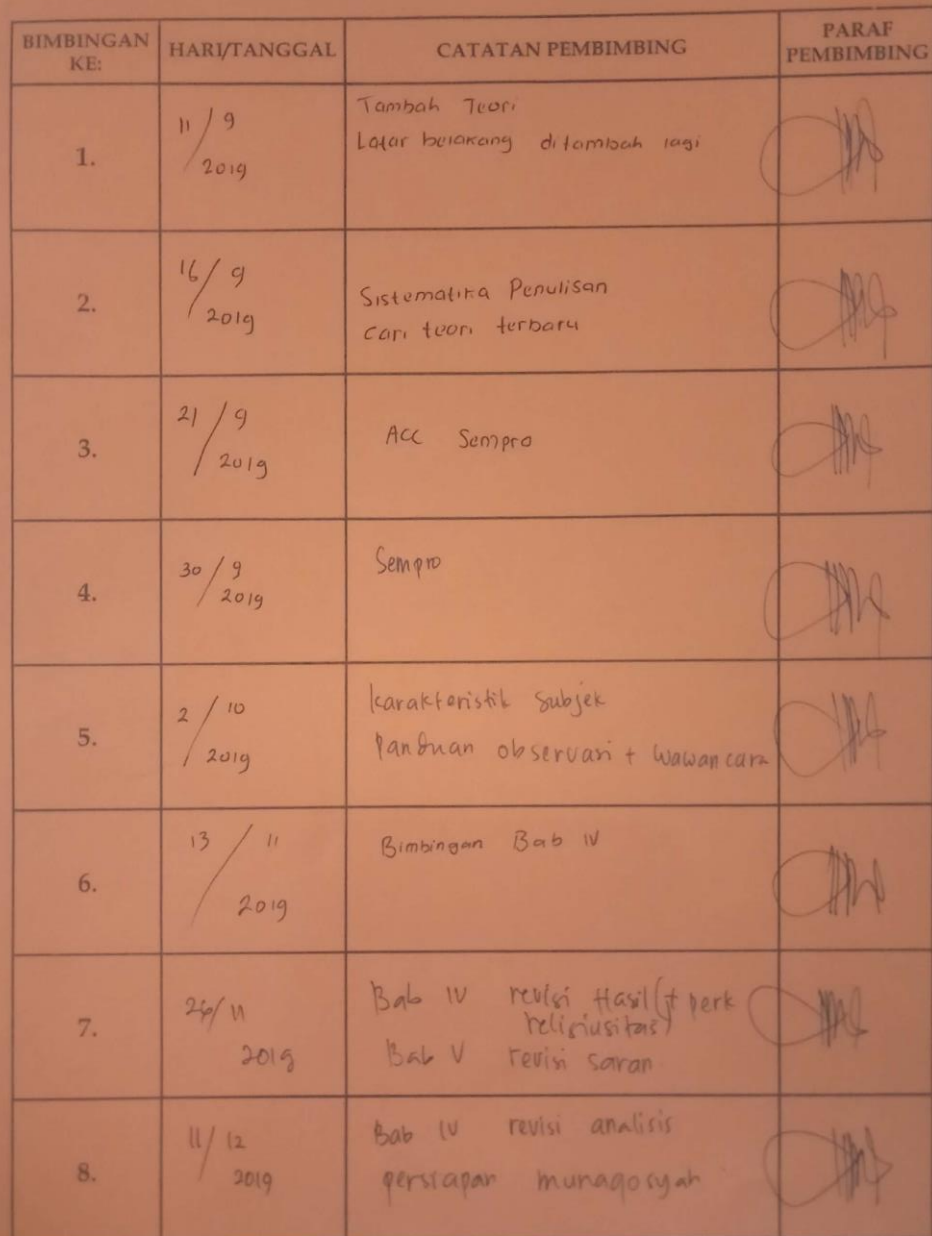 BIMBINGAN KE: HARI/TANGGAL CATATAN PEMBIMBING PARAF PEMBIMBING
1. 11/9 2019 Tambah Teori
Latar belakang ditambah lagi
2. 16/9 2019 Sistematika Penulisan
cari teori terbaru
3. 21/9 2019 ACC Sempro
4. 30/9 2019 Sempro
5. 2/10 2019 Karakteristik Subjek
Panduan observasi + wawancara
6. 13/11 2019 Bimbingan Bab IV
7. 26/11 2019 Bab IV revisi Hasil (+ perk
religiusitas)
Bab V revisi saran
8. 11/12 2019 Bab IV revisi analisis
persiapan munaqosyah